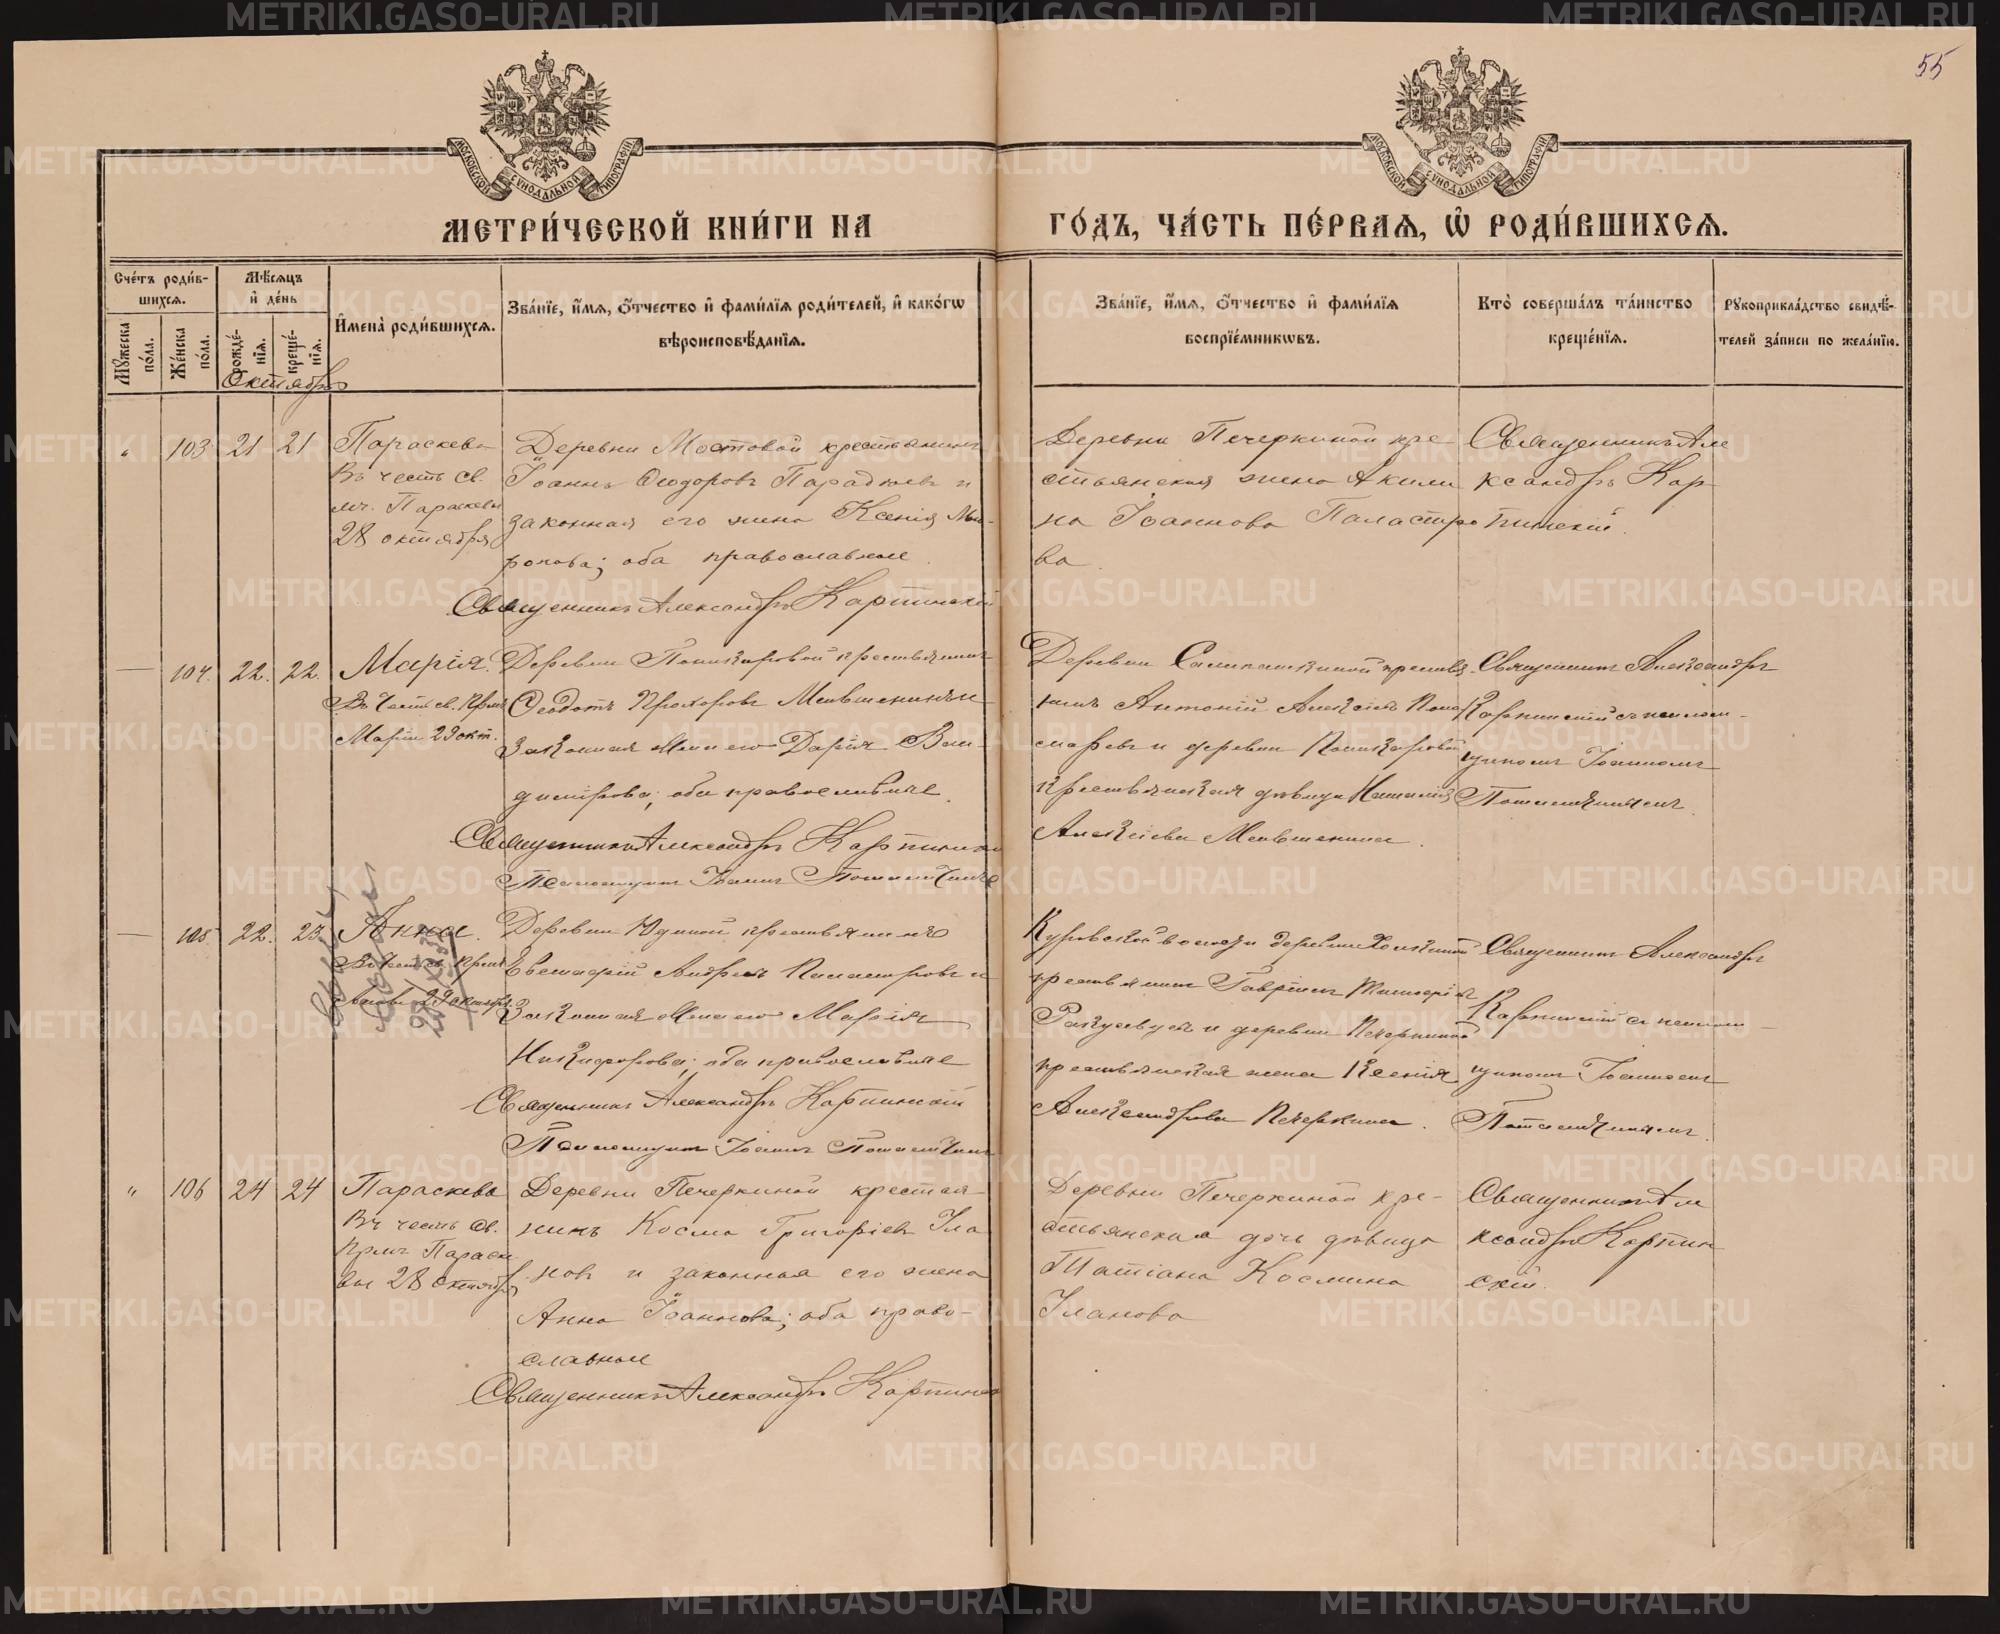 55
МОСКОВСКОЙ СѴНОДАЛЬНОЙ ТИПОГРАФІИ
МОСКОВСКОЙ СѴНОДАЛЬНОЙ ТИПОГРАФІИ
МЕТРИ́ЧЕСКОЙ КНИ́ГИ НА
ГО́ДЪ, ЧА́СТЬ ПЕ́РВАѦ, Ѡ҆ РОДИ́ВШИХСѦ.
Сче́тъ роди́в-
шихсѧ.
Мꙋ́жеска
по́ла.
Же́нска
по́ла.
Мѣ́сѧцъ
и҆ де́нь
рожде́-
нїѧ.
креще́-
нїѧ.
И҆мена̀ роди́вшихсѧ.
Зва́нїе, и҆́мѧ, ѻ҆́тчество и҆ фами́лїѧ роди́телей, и҆ како́гѡ
вѣроисповѣ́данїѧ.
Зва́нїе, и҆́мѧ, ѻ҆́тчество и҆ фами́лїѧ
воспрїе́мникѡвъ.
Кто̀ соверша́лъ та́инство
креще́нїѧ.
Рꙋкоприкла́дство свидѣ́-
телей за́писи по жела́нїю.
Октябрь
103 21 21
Параскева
Въ честь св.
мч. Параскевы
28 октября
Деревни Мостовой крестьянинъ
Іоаннъ Ѳеодоровъ и
законная его жена Ксенія Ми-
ронова; оба православные.
Священникъ Александръ Карпинскій
Деревни Печеркиной кре-
стьянская жена Акили
на Іоаннова Паластро
ва.
Священникъ Але
ксандръ Кар
пинскій.
104. 22. 22.
Марія.
Въ честь св. прм.
Маріи 29 окт.
Деревни крестьянинъ
Ѳеодотъ Прохоровъ Меньшенинъ и
законная жена его Дарія Вла-
димірова; оба православные.
Священникъ Александръ Карпинскій
Псаломщикъ Іоаннъ
Деревни крестья-
нинъ Антоній Алексіевъ Поно
маревъ и деревни
крестьянская дѣвица Наталія
Алексіева Меньшенина.
Священникъ Александръ
Карпинскій съ псалом-
щикомъ Іоанномъ
105 22. 23
Анна.
Въ честь св. прм.
Анны 29 октября
Деревни Юдиной крестьянинъ
Евстафій Андреевъ Паластровъ и
законная жена его Марія
Никифорова; оба православные
Священникъ Александръ Карпинскій
Псаломщикъ Іоаннъ
Куровской волости деревни
крестьянинъ Гавріилъ
и деревни Печеркиной
крестьянская жена Ксенія
Александрова Печеркина.
Священникъ Александръ
Карпинскій съ псалом-
щикомъ Іоанномъ
" 106 24 24
Параскева
Въ честь св.
прмч. Параске
вы 28 октября
Деревни Печеркиной крестья-
нинъ Косма Григоріевъ Ула
новъ и законная его жена
Анна Іоаннова; оба право-
славные
Священникъ Александръ Карпинскій
Деревни Печеркиной кре-
стьянская дочь дѣвица
Татіана Космина
Уланова
Священникъ Але
ксандръ Карпин
скій.
METRIKI.GASO-URAL.RU